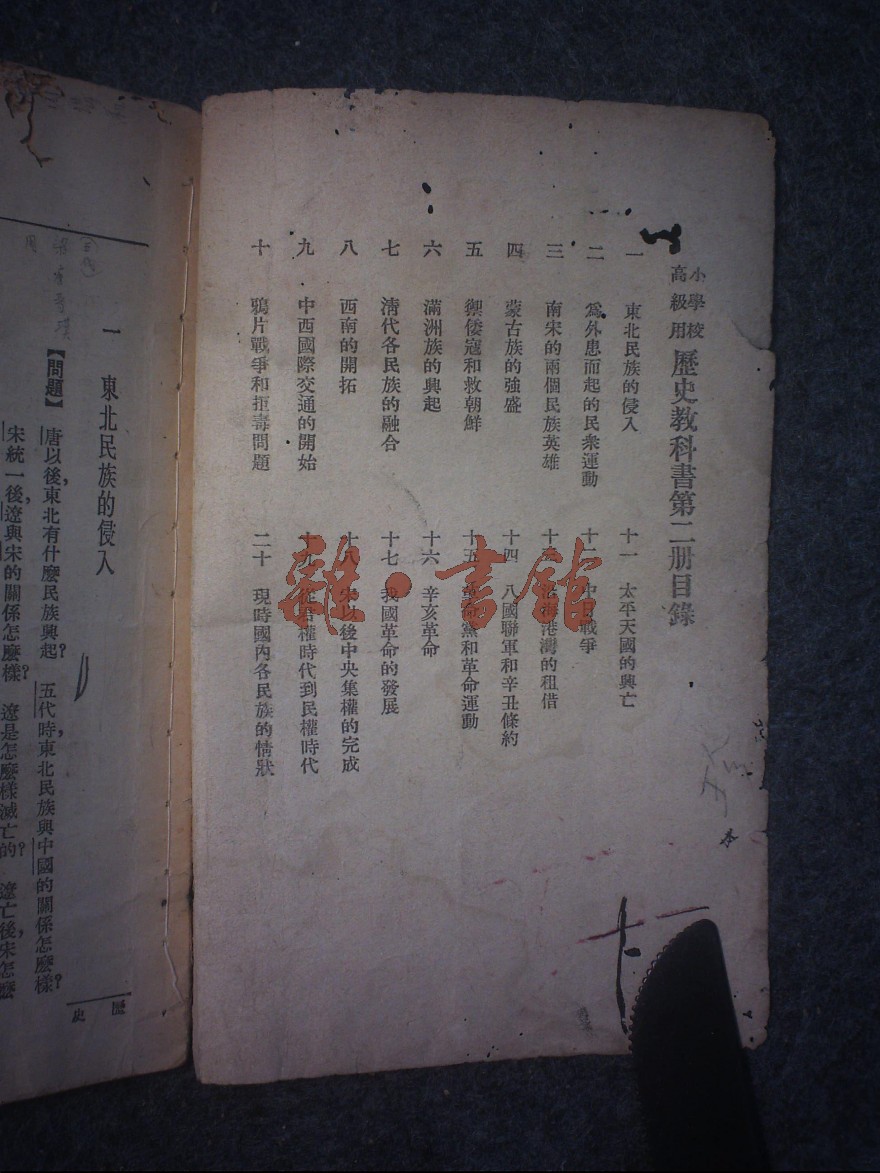 小學校
高級用
歷史教科書第二册目錄
一 東北民族的侵入
二 爲外患而起的民衆運動
三 南宋的兩個民族英雄
四 蒙古族的強盛
五 禦倭寇和救朝鮮
六 滿洲族的興起
七 清代各民族的融合
八 西南的開拓
九 中西國際交通的開始
十 鴉片戰爭和拒毒問題
十一 太平天國的興亡
十二 中日戰爭
十三 港灣的租借
十四 八國聯軍和辛丑條約
十五 革命黨和革命運動
十六 辛亥革命
十七 我國革命的發展
十八 宋以後中央集權的完成
十九 從君權時代到民權時代
二十 現時國內各民族的情狀
雜·書館
本
歷史
一 東北民族的侵入
【問題】 唐以後,東北有什麼民族興起? 五代時,東北民族與中國的關係怎麼樣?
宋統一後,遼與宋的關係怎麼樣? 遼是怎麼樣滅亡的? 遼亡後,宋怎麼